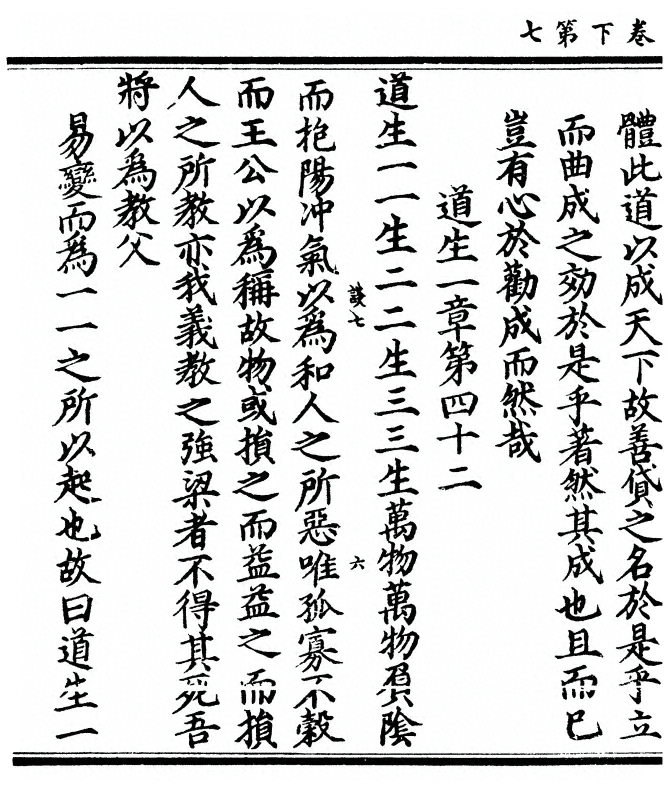 卷下第七
體此道以成天下故善貸之名於是乎立
而曲成之効於是乎著然其成也且而已
豈有心於勸成而然哉
道生一章第四十二
道生一一生二二生三三生萬物萬物負陰
談七
六
而抱陽冲氣以為和人之所惡唯孤寡不穀
而王公以為稱故物或損之而益益之而損
人之所教亦我義教之強梁者不得其死吾
將以為教父
易變而為一一之所以起也故曰道生一